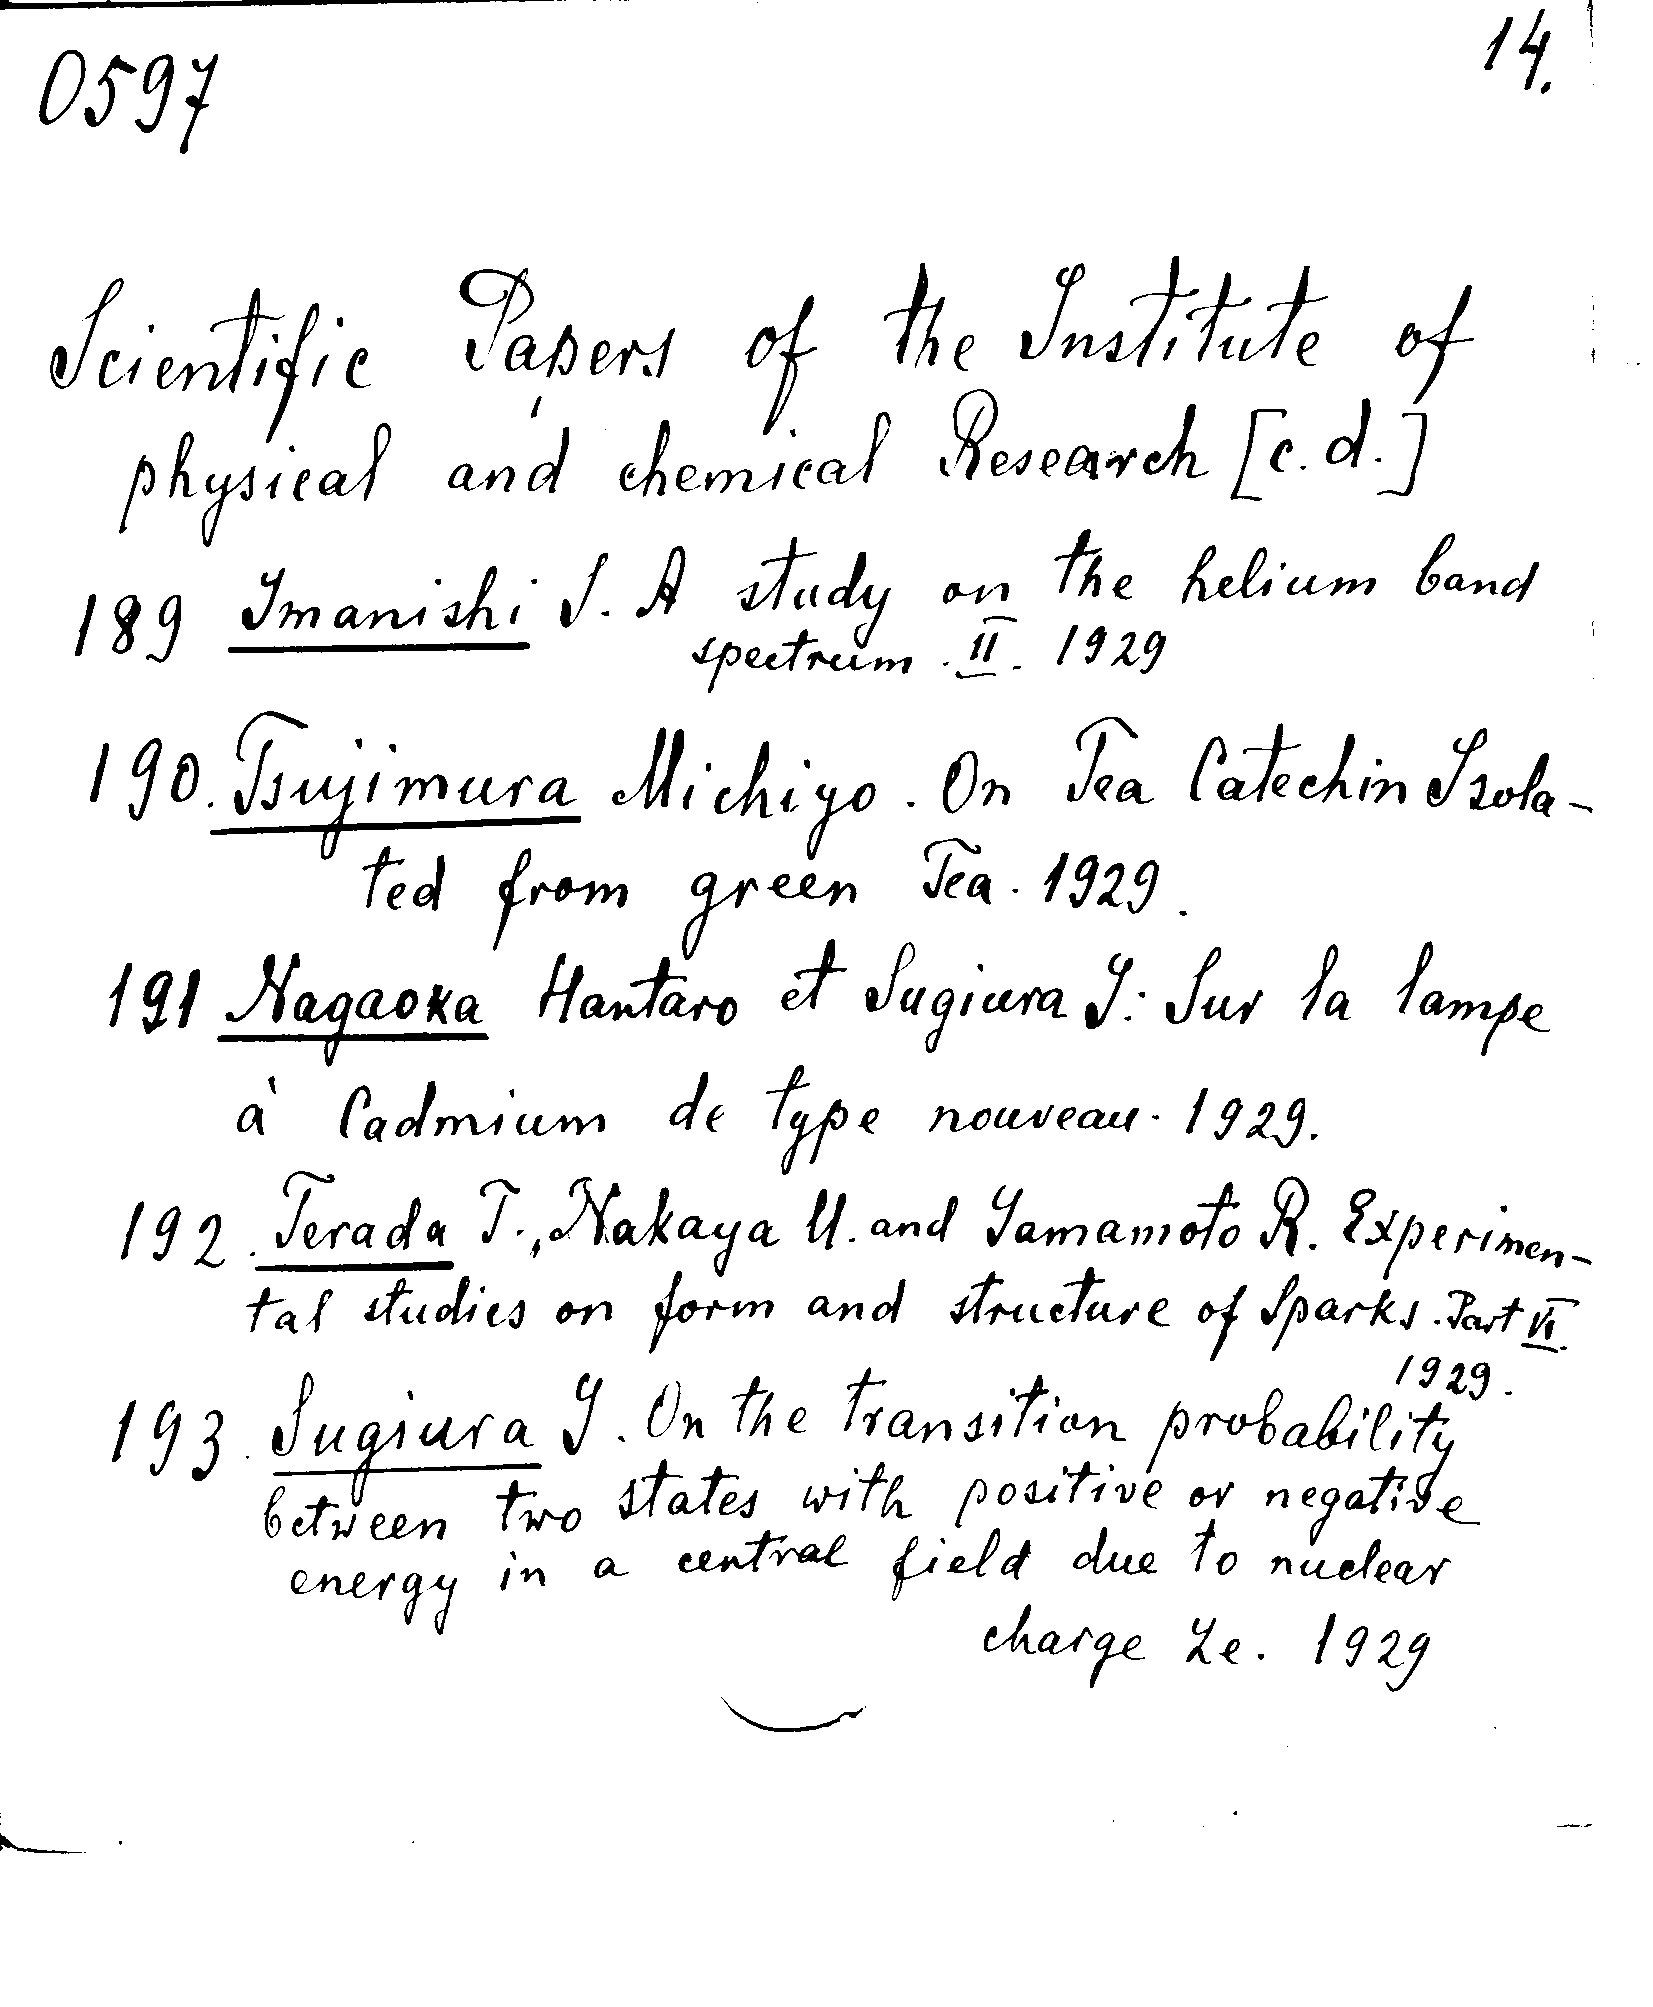 0597
14.
Scientific Papers of the Institute of
physical and chemical Research [c.d.]
189 Imanishi S. A study on the helium band
spectrum. II. 1929
190. Tsujimura Michiyo. On Tea Catechin Isola-
ted from green Tea. 1929.
191 Nagaoka Hantaro et Sugiura Y: Sur la lampe
à Cadmium de type nouveau. 1929.
192. Terada T., Nakaya U. and Yamamoto R. Experimen-
tal studies on form and structure of Sparks. Part VI.
1929.
193. Sugiura Y. On the transition probability
between two states with positive or negative
energy in a central field due to nuclear
charge Ze. 1929